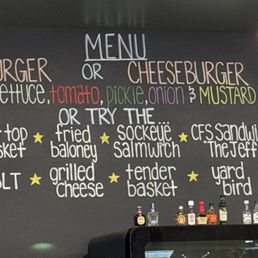 MENU
URGER OR CHEESEBURGER
ettuce, tomato, pickle, onion & MUSTARD
OR TRY THE
top ★ fried ★ sockeye ★ CFS Sandwi
sket baloney salmwich The Jeff
LT ★ grilled ★ tender ★ yard
cheese basket bird